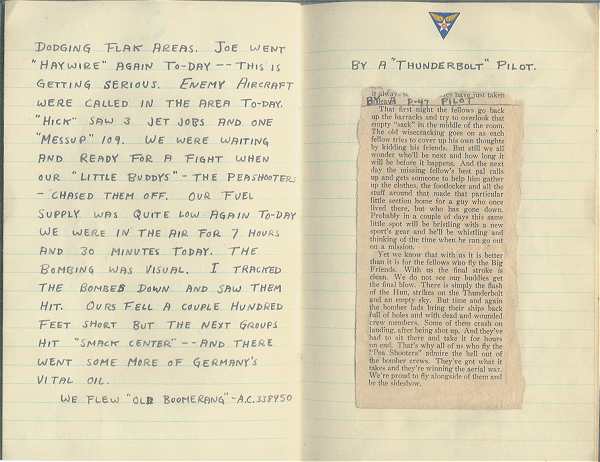 DODGING FLAK AREAS. JOE WENT
"HAYWIRE" AGAIN TO-DAY -- THIS IS
GETTING SERIOUS. ENEMY AIRCRAFT
WERE CALLED IN THE AREA TO-DAY.
"HICK" SAW 3 JET JOBS AND ONE
"MESSUP" 109. WE WERE WAITING
AND READY FOR A FIGHT WHEN
OUR "LITTLE BUDDYS" - THE PEASHOOTERS
- CHASED THEM OFF. OUR FUEL
SUPPLY WAS QUITE LOW AGAIN TO-DAY
WE WERE IN THE AIR FOR 7 HOURS
AND 30 MINUTES TODAY. THE
BOMBING WAS VISUAL. I TRACKED
THE BOMBES DOWN AND SAW THEM
HIT. OURS FELL A COUPLE HUNDRED
FEET SHORT BUT THE NEXT GROUPS
HIT "SMACK CENTER" -- AND THERE
WENT SOME MORE OF GERMANY'S
VITAL OIL.
WE FLEW "OLD BOOMERANG" - A.C. 338950
BY A "THUNDERBOLT" PILOT.
have just taken
BY A P-47 PILOT
That first night the fellows go back
up the barracks and try to overlook that
empty "sack" in the middle of the room.
The old wisecracking goes on as each
fellow tries to cover up his own thoughts
by kidding his friends. But still we all
wonder who'll be next and how long it
will be before it happens. And the next
day the missing fellow's best pal calls
up and gets someone to help him gather
up the clothes, the footlocker and all the
stuff around that made that particular
little section home for a guy who once
lived there, but who has gone down.
Probably in a couple of days this same
little spot will be bristling with a new
sport's gear and he'll be whistling and
thinking of the time when he can go out
on a mission.
Yet we know that with us it is better
than it is for the fellows who fly the Big
Friends. With us the final stroke is
clean. We do not see our buddies get
the final blow. There is simply the flash
of the Hun, strikes on the Thunderbolt
and an empty sky. But time and again
the bomber lads bring their ships back
full of holes and with dead and wounded
crew members. Some of them crash on
landing, after being shot up. And they've
had to sit there and take it for hours
on end. That's why all of us who fly the
"Pea Shooters" admire the hell out of
the bomber crews. They've got what it
takes and they're winning the aerial war.
We're proud to fly alongside of them and
be the sideshow.